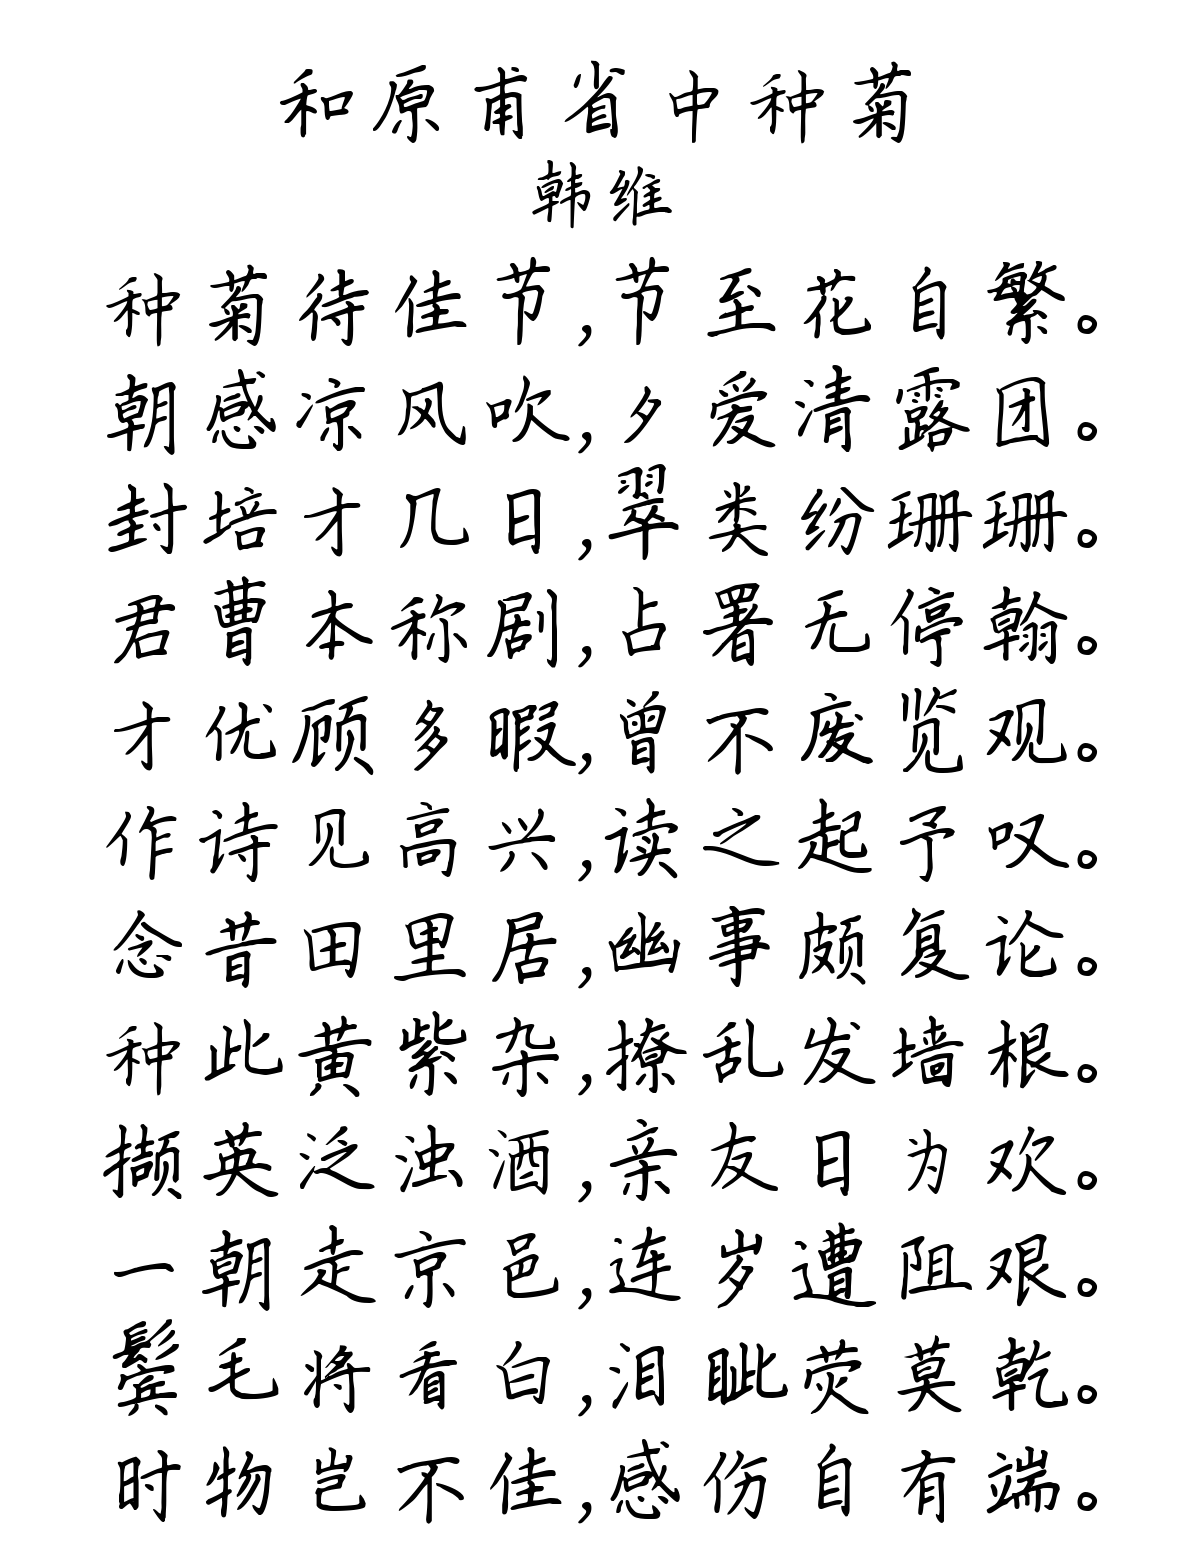 和原甫省中种菊
韩维
种菊待佳节,节至花自繁。
朝感凉风吹,夕爱清露团。
封培才几日,翠类纷珊珊。
君曹本称剧,占署无停翰。
才优顾多暇,曾不废览观。
作诗见高兴,读之起予叹。
念昔田里居,幽事颇复论。
种此黄紫杂,撩乱发墙根。
撷英泛浊酒,亲友日为欢。
一朝走京邑,连岁遭阻艰。
鬓毛将看白,泪眦荧莫乾。
时物岂不佳,感伤自有端。